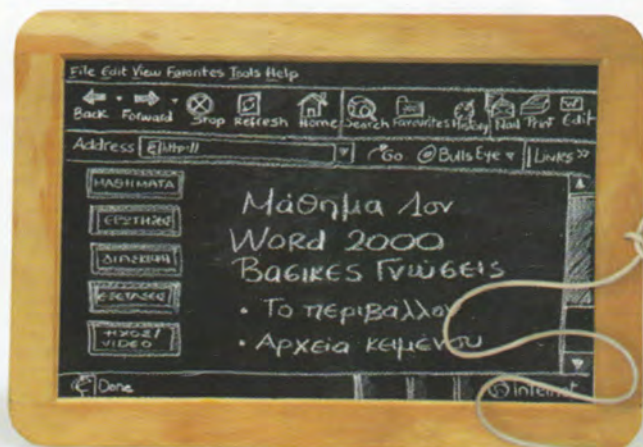 File Edit View Favorites Tools Help
Back Forward Stop Refresh Home Search Favourites History Mail Print Edit
Address http:// Go BullsEye Links »
ΜΑΘΗΜΑΤΑ
ΕΡΩΤΗΣΕΙΣ
ΔΙΑΣΚΕΨΗ
ΕΞΕΤΑΣΕΙΣ
ΗΧΟΣ/
VIDEO
Μάθημα 1ον
WORD 2000
ΒΑΣΙΚΕΣ ΓΝώσεις
• Το περιβάλλον
• Αρχεία κειμένου
Done Internet